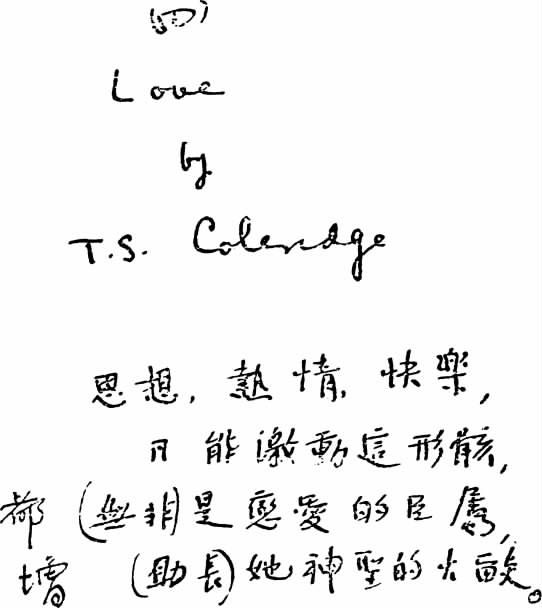 (四)
Love
by
T.S. Coleredge
思想,熱情,快樂,
凡能激動這形骸,
都(無非)是戀愛的臣屬,
增(助長)她神聖的火燄。